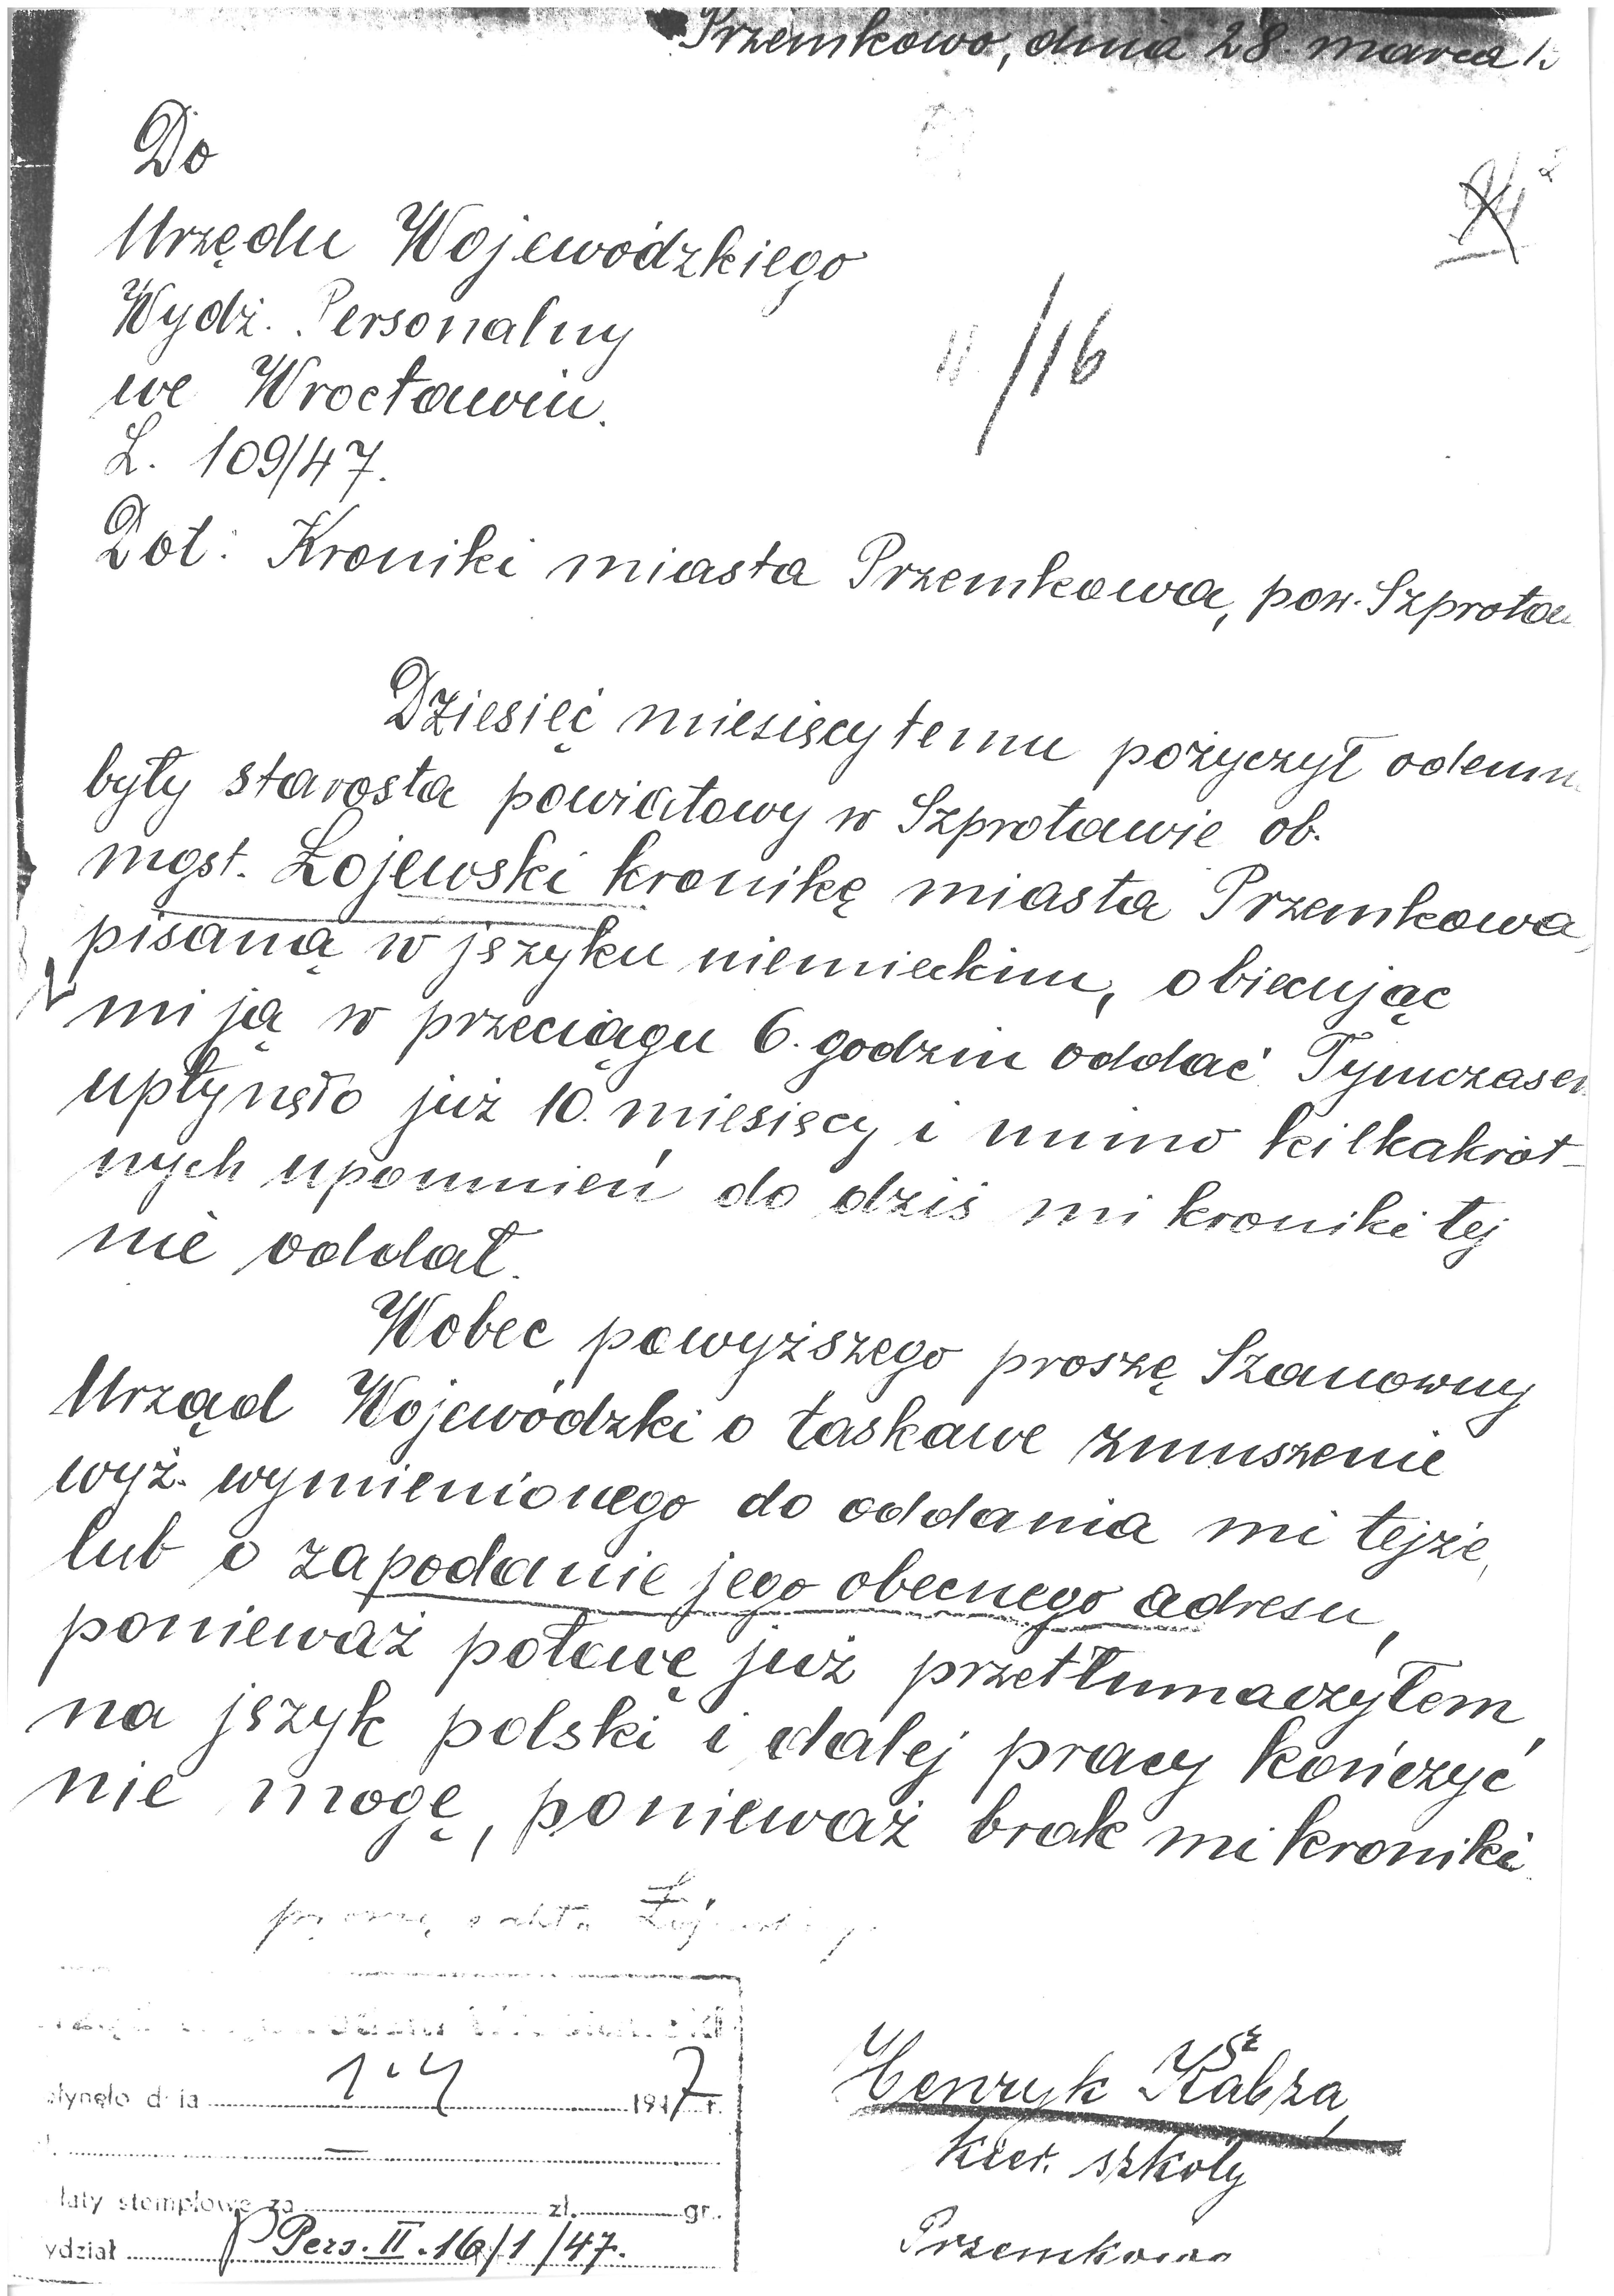 Przemkowo, dnia 28. marca 1
Do
Urzędu Wojewódzkiego
Wydz. Personalny
we Wrocławiu.
L. 109/47.
/16
Dot: Kroniki miasta Przemkowa, pow. Szprota
Dziesięć miesięcy temu pożyczył odemn
były starosta powiatowy w Szprotawie ob.
mgst. Łojewski kronikę miasta Przemkowa,
pisaną w języku niemieckim, obiecując
mi ją w przeciągu 6. godzin oddać. Tymczasem
upłynęło już 10. miesięcy i mimo kilkakrot-
nych upomnień do dziś mi kroniki tej
nie oddał.
Wobec powyższego proszę Szanowny
Urząd Wojewódzki o łaskawe zmuszenie
wyż. wymienionego do oddania mi tejże,
lub o zapodanie jego obecnego adresu,
ponieważ połowę już przetłumaczyłem
na język polski i dalej pracy kończyć
nie mogę, ponieważ brak mi kroniki.
płynęło dnia 1.4 1947 r.
łaty stemplowe za zł. gr.
ydział Pers. II. 16/1/47.
Henryk Kabza
kier. szkoły
Przemkowo